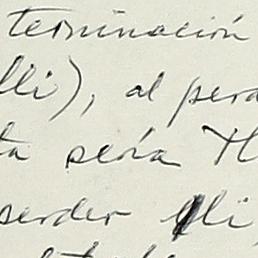 terminación
lli), al perd
ta sería H
serder lli